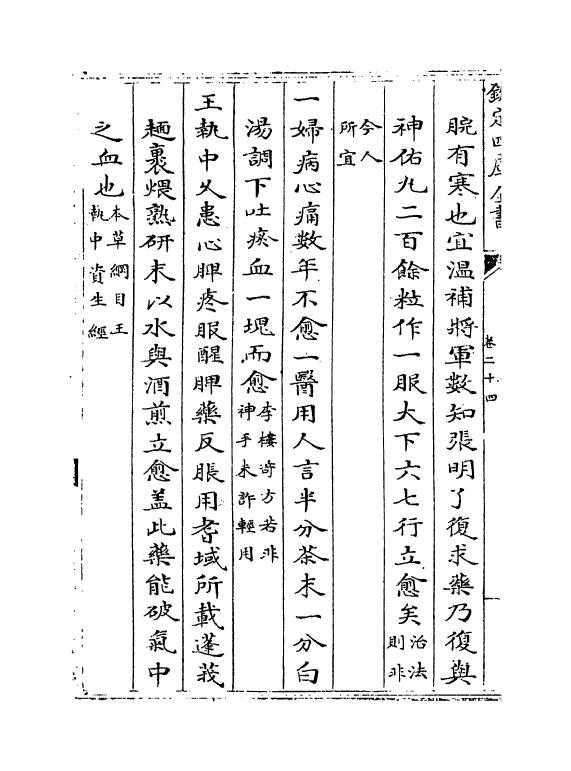 欽定四庫全書
卷二十四
脘有寒也宜溫補將軍數知張明了復求藥乃復與
神佑丸二百餘粒作一服大下六七行立愈矣治法則非
今人所宜
一婦病心痛數年不愈一醫用人言半分茶末一分白
湯調下吐瘀血一塊而愈李樓竒方若非神手未許輕用
王執中久患心脾疼服醒脾藥反脹用耆域所載蓬莪
麵裹煨熟研末以水與酒煎立愈蓋此藥能破氣中
之血也本草綱目王執中資生經